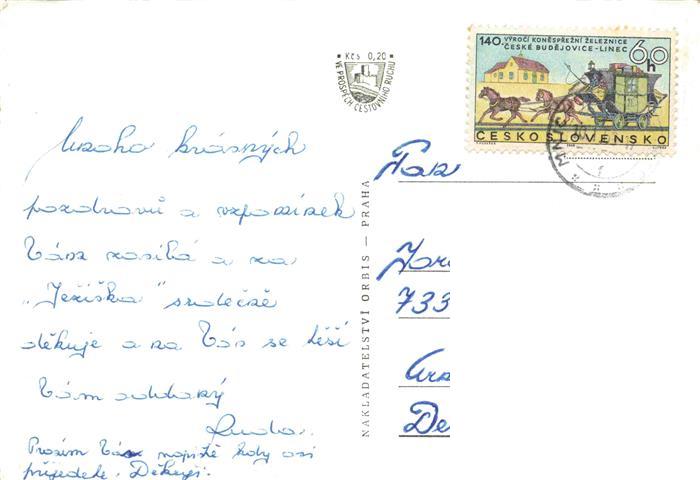 Kčs 0,20
VE PROSPĚCH CESTOVNÍHO RUCHU
140. VÝROČÍ KONĚSPŘEŽNÍ ŽELEZNICE
ČESKÉ BUDĚJOVICE-LINEC
60 h
ČESKOSLOVENSKO
Mnoho krásných
pozdravů a vzpomínek
Vám zasílá a za
„Ježíška" srdečně
děkuje a na Vás se těší
Vám oddaný
Ruda.
Prosím Vás napište kdy asi
přijedete. Děkuji.
NAKLADATELSTVÍ ORBIS — PRAHA
733